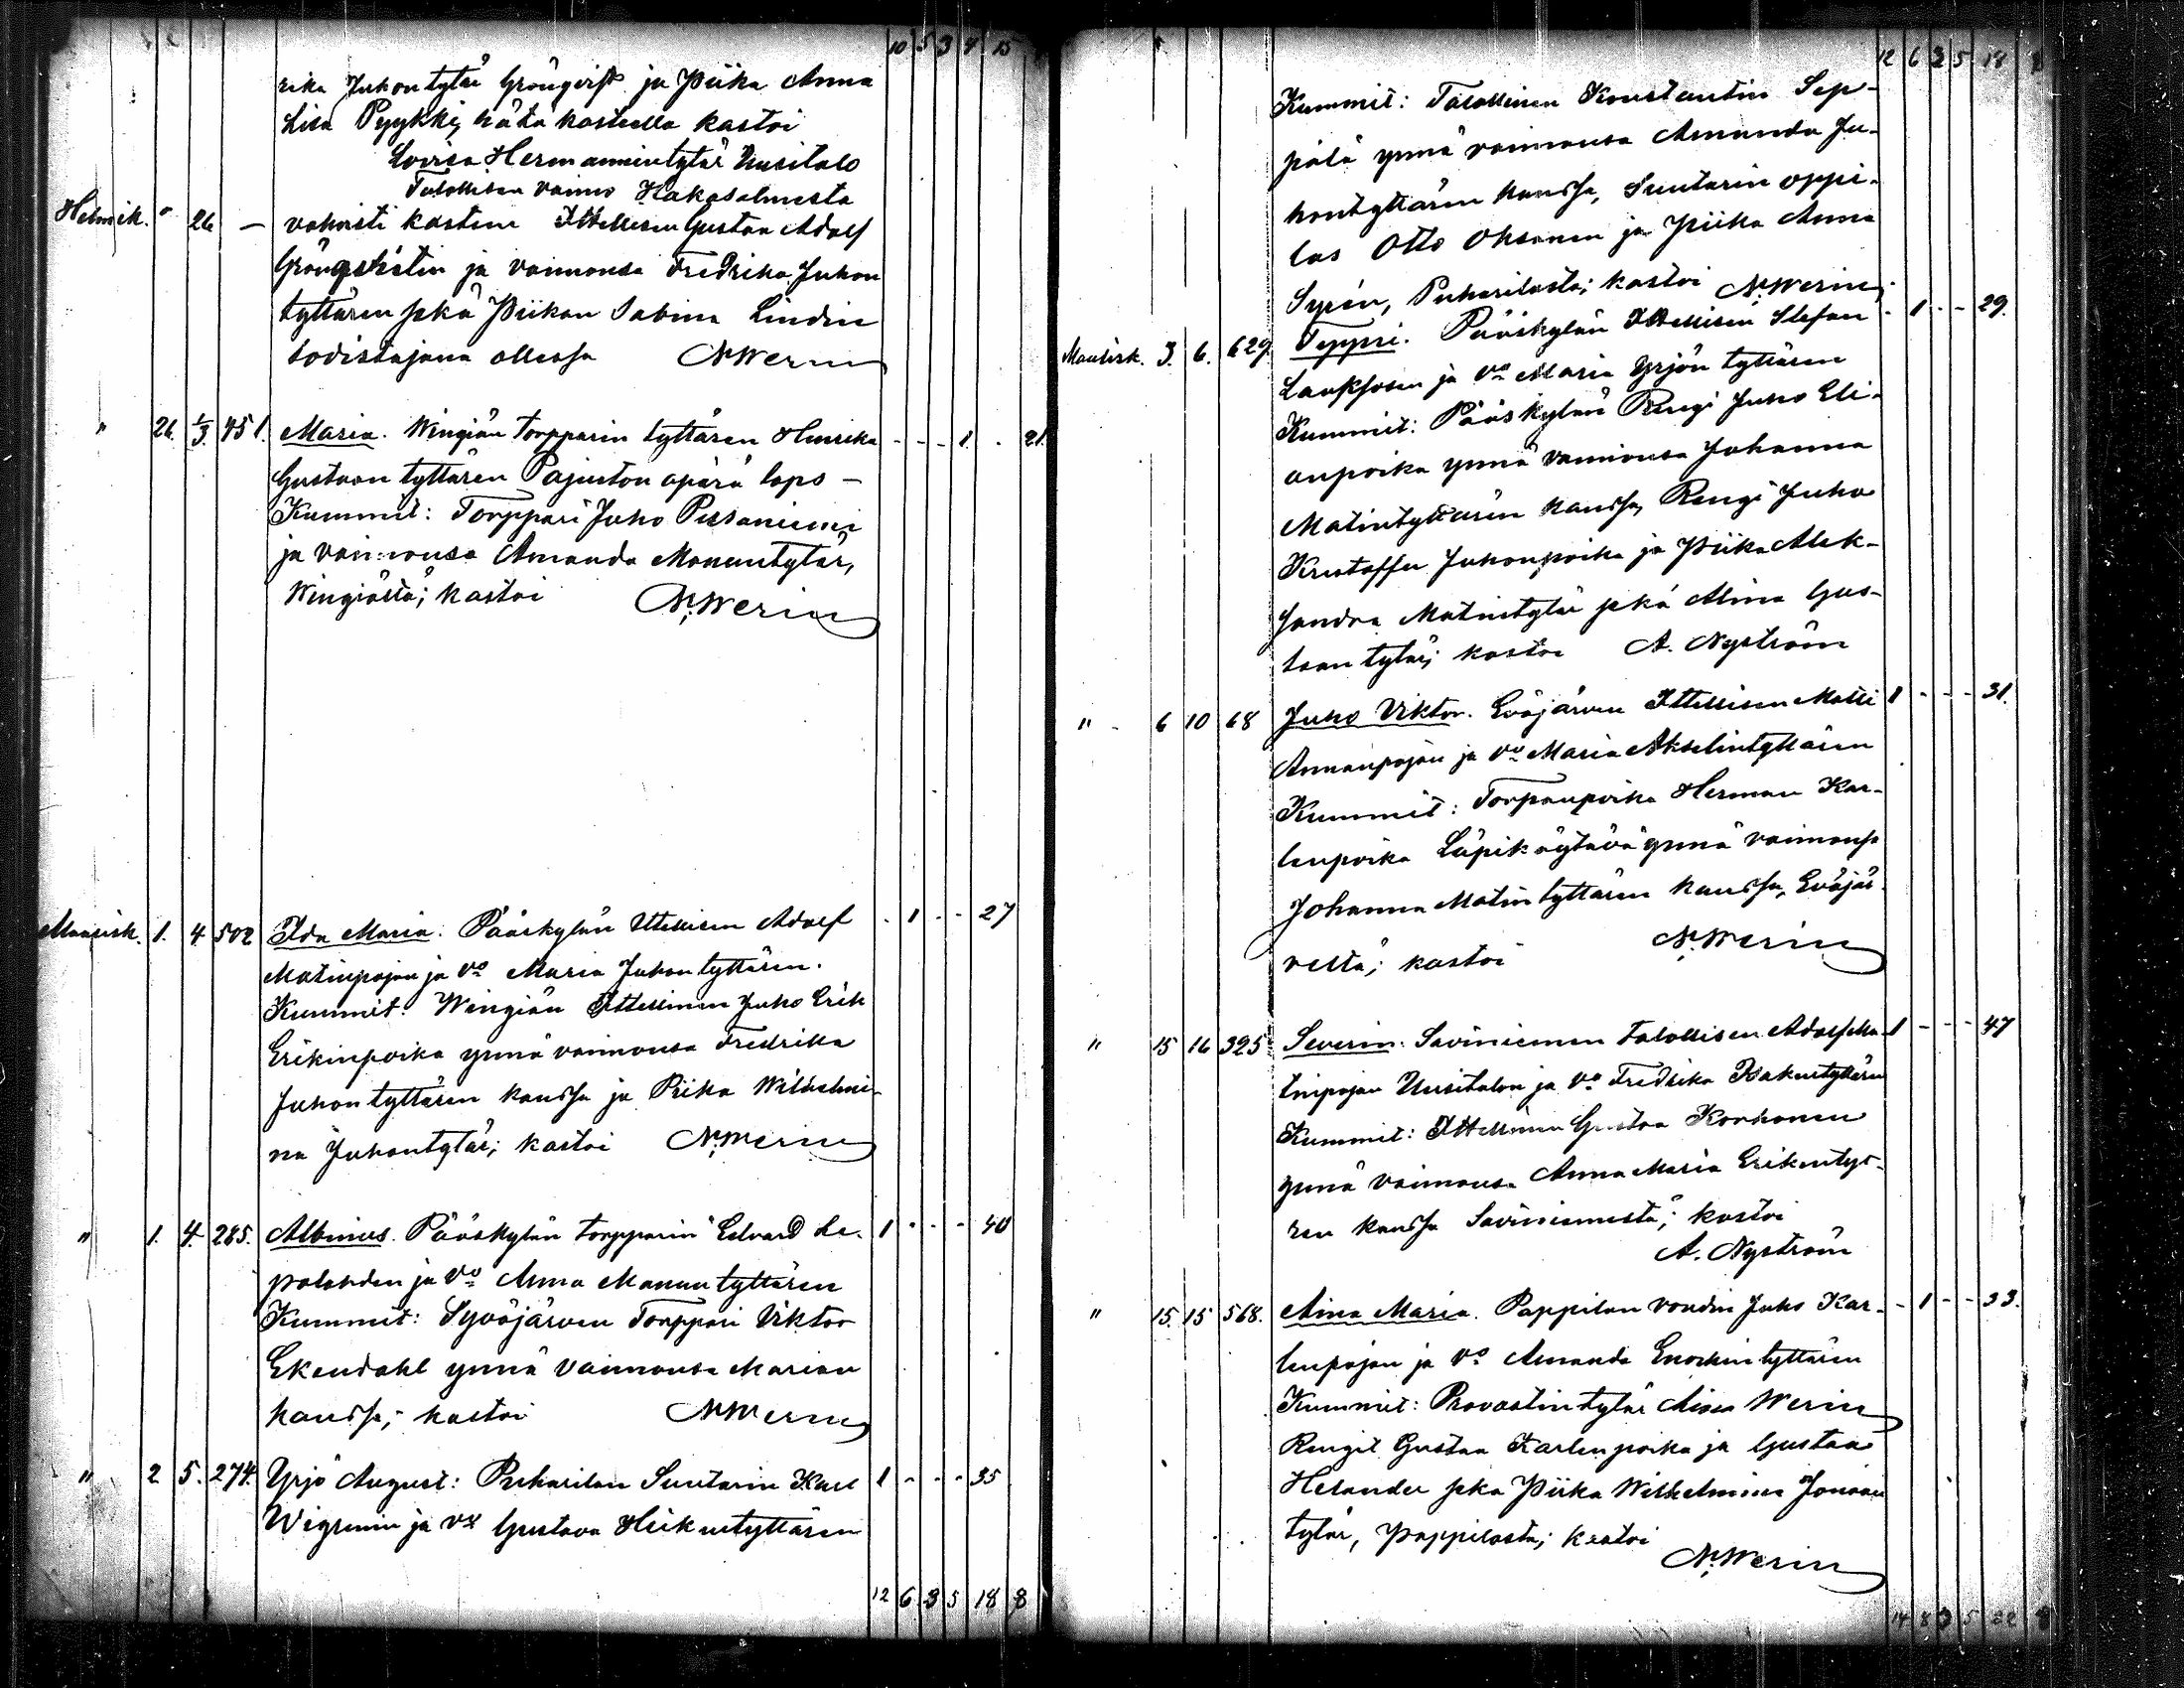 10 5 3 4 15
rika Juhontytär Grönqvist ja Piika Anna
Lisa Pyykki, hätä kasteella kastoi
Lovisa Hermannintytär Uusitalo
Talollisen vaimo Hakasalmesta
Helmik. " 26 — vahvisti kasteen Ittellisen Gustaa Adolf
Grönqvistin ja vaimonsa Fredrika Juhon
tyttären sekä Piikan Sabina Lindin
todistajana ollessa N. Werin
" 26. 1/3. 451. Maria. Wingiän torpparin tyttären Henrika - - - 1. - 21.
Gustaan tyttären Pajuston äpärä laps —
Kummit: Torppari Juho Pessaniemi
ja vaimonsa Amanda Manuntytär,
Wingiästä; kastoi N. Werin
Maalisk. 1. 4. 502 Ida Maria. Pääskylän Ittellisen Adolf - 1 - - 27
Matinpojan ja Vo Maria Juhontyttären.
Kummit: Wingiän Ittellinen Juho Erik
Erikinpoika ynnä vaimonsa Fredrika
Juhontyttären kanssa ja Piika Wilhelmi-
na Juhontytär; kastoi N. Werin
" 1. 4. 285. Albinus. Pääskylän torpparin Edvard Le- 1 - - - 40
palahden ja Vo Anna Manuntyttären
Kummit: Syväjärven Torppari Viktor
Ekendahl ynnä vaimonsa Marian
kanssa; kastoi N. Werin
" 2 5. 274. Yrjö August: Puharilan Suutarin Karl 1 - - - 35
Wigrenin ja Vo Gustava Heikintyttären
12 6 3 5 18 8
12 6 3 5 18 8
Kummit: Talollinen Konstantin Sep-
pälä ynnä vaimonsa Amanda Ju-
hontyttären kanssa, Suutarin oppi-
las Otto Oksanen ja Piika Anna
Syrén, Puharilasta; kastoi N. Werin
Maalisk. 3. 6. 629. Seppri. Pääskylän Ittellisen Stefan - 1 - - 29.
Laukkosen ja Vo Maria Yrjön tyttären
Kummit: Pääskylän Rengi Juho Eli-
anpoika ynnä vaimonsa Johanna
Matintyttären kanssa, Rengi Juho
Kristoffer Juhonpoika ja Piika Alek-
sandra Matintytär sekä Alina Gus-
taan tytär; kastoi A. Nyström
" 6 10 68 Juho Viktor. Eväjärven Ittellisen Matti 1 - - - 31.
Annanpojan ja Vo Maria Akselintyttären
Kummit: Torpanpoika Herman Kar-
lenpoika Läpikäytävä ynnä vaimonsa
Johanna Matintyttären kanssa, Eväjär-
veltä; kastoi N. Werin
" 15 16 325 Severin. Saviniemen talollisen Adolf Ma- 1 - - - 47
tinpojan Uusitalon ja Vo Fredrika Iisakintyttären
Kummit: Ittellinen Gustaa Korhonen
ynnä vaimonsa Anna Maria Erikintyt-
ren kanssa Saviniemestä; kastoi
A. Nyström
" 15. 15 568. Aina Maria. Pappilan voudin Juho Kar- - 1 - - 33.
lenpojan ja Vo Amanda Enokin tyttären
Kummit: Provastintytär Aina Werin
Rengit Gustaa Karlenpoika ja Gustaa
Helander sekä Piika Wilhelmina Jonaan
tytär, Pappilasta; kastoi
N. Werin
14 8 3 5 22 8